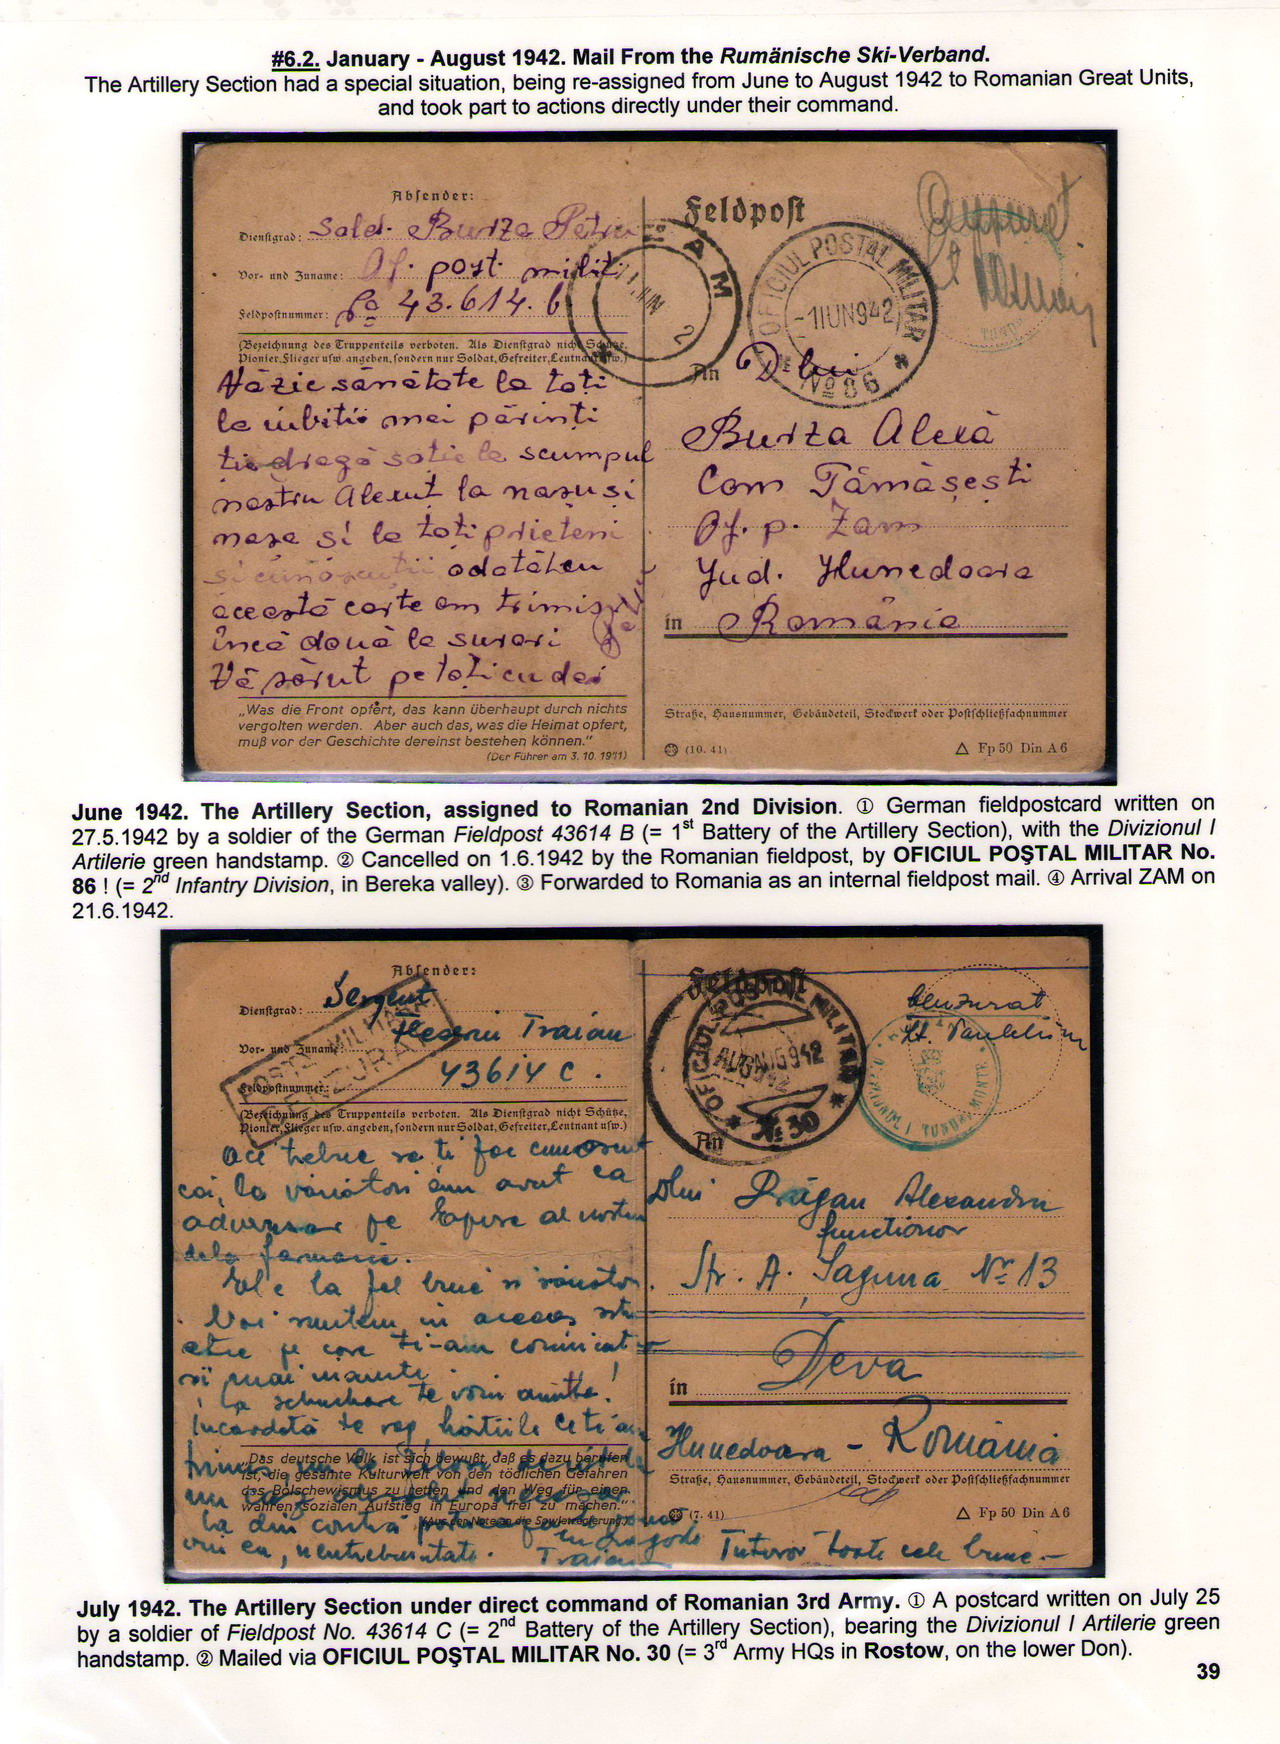 #6.2. January - August 1942. Mail From the Rumänische Ski-Verband.
The Artillery Section had a special situation, being re-assigned from June to August 1942 to Romanian Great Units,
and took part to actions directly under their command.
Absender:
Dienstgrad: Sold. Burza Petru
Vor- und Zuname: Of. post. milit.
Feldpostnummer: 43.614.b
(Bezeichnung des Truppenteils verboten. Als Dienstgrad nicht Schütze,
Pionier, Flieger usw. angeben, sondern nur Soldat, Gefreiter, Leutnant usw.)
sănătate la toți
la iubitii mei părinți
ție dragă soție la scumpul
nostru Alexut la nasu si
nasa si la toți prieteni
odată cu
această carte am trimis
încă două la surori
Vă sărut pe toți cu dor
Petru
„Was die Front opfert, das kann überhaupt durch nichts
vergolten werden. Aber auch das, was die Heimat opfert,
muß vor der Geschichte dereinst bestehen können.“
(Der Führer am 3. 10. 1941)
Feldpost
ZAM
2
OFICIUL POSTAL MILITAR
-1IUN942
No 86
An Dlui
Burza Alexă
Com Tămășești
Of. p. Zam
Jud. Hunedoara
in România
Straße, Hausnummer, Gebäudeteil, Stockwerk oder Postschließfachnummer
(10. 41)
△ Fp 50 Din A 6
June 1942. The Artillery Section, assigned to Romanian 2nd Division. ① German fieldpostcard written on
27.5.1942 by a soldier of the German Fieldpost 43614 B (= 1st Battery of the Artillery Section), with the Divizionul I
Artilerie green handstamp. ② Cancelled on 1.6.1942 by the Romanian fieldpost, by OFICIUL POŞTAL MILITAR No.
86 ! (= 2nd Infantry Division, in Bereka valley). ③ Forwarded to Romania as an internal fieldpost mail. ④ Arrival ZAM on
21.6.1942.
Absender:
Dienstgrad: Sergent
Vor- und Zuname: Traian
Feldpostnummer: 43614 C.
(Bezeichnung des Truppenteils verboten. Als Dienstgrad nicht Schütze,
Pionier, Flieger usw. angeben, sondern nur Soldat, Gefreiter, Leutnant usw.)
POSTA MILITARA
CENZURAT
trebue sa ti fac cunoscut
că, la vânători am avut ca
adversar pe al nostru
dela farmacie.
El e la fel bine si sănătos.
Noi suntem in aceeas
pe care ti-am comunicat
si mai inainte!
La schimbare te voiu anunta!
te rog hârtiile ce ti
„Das deutsche Volk ist sich bewußt, daß es dazu berufen
ist, die gesamte Kulturwelt von den tödlichen Gefahren
des Bolschewismus zu retten und den Weg für einen
wahren sozialen Aufstieg in Europa frei zu machen.“
(Aus der Note an die Sowjetregierung.)
La din contră
Traian
Feldpost
OFICIUL POSTAL MILITAR
AUG942
No 30
Cenzurat
Lt.
DIVIZIONUL I TUNURI MUNTE
An
Dlui Drăgan Alexandru
functionar
Str. A. Șaguna No 13
in Deva
Hunedoara - România
Straße, Hausnummer, Gebäudeteil, Stockwerk oder Postschließfachnummer
(7. 41)
△ Fp 50 Din A 6
Tuturor toate cele bune -
July 1942. The Artillery Section under direct command of Romanian 3rd Army. ① A postcard written on July 25
by a soldier of Fieldpost No. 43614 C (= 2nd Battery of the Artillery Section), bearing the Divizionul I Artilerie green
handstamp. ② Mailed via OFICIUL POŞTAL MILITAR No. 30 (= 3rd Army HQs in Rostow, on the lower Don).
39